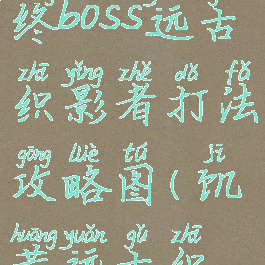 终boss远古
zhī yǐng zhě dǎ fǎ
织影者打法
gōng lüè tú jī
攻略图(饥
huāng yuǎn gǔ zhī
荒远古织